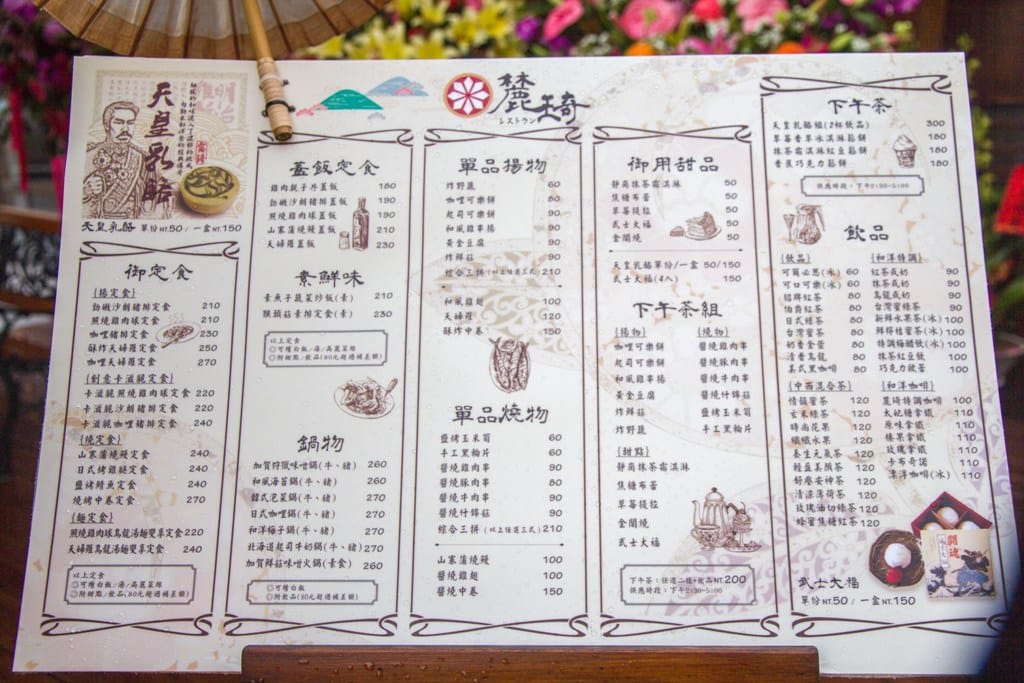 天皇乳酪
天皇乳酪 單份NT.50 / 一盒NT.150
御定食
(捲定食)
訪嫩沙朗捲排定食 210
照燒雞肉球定食 210
咖哩豬排定食 230
酥炸天婦羅定食 250
咖哩天婦羅定食 270
(創意卡滋脆定食)
卡滋脆照燒雞肉球定食 220
卡滋脆沙朗豬排定食 220
卡滋脆咖哩豬排定食 220
(燒定食)
山寨蒲燒鰻定食 240
日式烤雞腿定食 240
鹽烤鯖魚定食 240
燒烤中卷定食 240
(麵定食)
照燒雞肉球烏龍湯麵雙享定食 220
天婦羅烏龍湯麵雙享定食 240
以上定食
◎可續白飯/湯/高麗菜絲
◎附甜點/飲品(80元超過補差額)
蓋飯定食
雞肉親子丼蓋飯 180
訪嫩沙朗豬蓋飯 190
照燒雞肉球蓋飯 190
山寨蒲燒鰻蓋飯 210
天婦羅蓋飯 230
素鮮味
素魚子蔬菜炒飯(素) 210
猴頭菇素排定食(素) 230
以上定食
◎可續白飯/湯/高麗菜絲
◎附甜點/飲品(80元超過補差額)
鍋物
加賀狩獵味噌鍋(牛、豬) 260
和風海苔鍋(牛、豬) 260
韓式泡菜鍋(牛、豬) 270
日式咖哩鍋(牛、豬) 270
和洋梅子鍋(牛、豬) 270
北海道起司牛奶鍋(牛、豬) 270
加賀鮮菇味噌火鍋(素食) 260
◎可續白飯
◎附飲品(80元超過補差額)
麓奇
レストラン
單品揚物
炸野蔬 60
咖哩可樂餅 90
起司可樂餅 90
和風雞串揚 90
黃金豆腐 90
炸鮮菇 90
綜合三拼(以上任選三式) 210
和風雞翅 100
天婦羅 120
酥炸中卷 150
單品燒物
鹽烤玉米筍 60
手工黑輪片 60
醬燒雞肉串 90
醬燒豚肉串 90
醬燒牛肉串 90
醬燒什錦菇 90
綜合三拼(以上任選三式) 210
山寨蒲燒鰻 100
醬燒雞翅 100
醬燒中卷 150
御用甜品
靜岡抹茶霜淇淋 50
焦糖布蕾 50
草莓提拉 50
武士大福 50
金閣燒 50
天皇乳酪單份/一盒 50/150
武士大福(4入) 150
下午茶組
(揚物)
咖哩可樂餅
起司可樂餅
和風雞串揚
黃金豆腐
炸鮮菇
炸野蔬
(燒物)
醬燒雞肉串
醬燒豚肉串
醬燒牛肉串
醬燒什錦菇
鹽烤玉米筍
手工黑輪片
(甜點)
靜岡抹茶霜淇淋
焦糖布蕾
草莓提拉
金閣燒
武士大福
下午茶：任選二樣+飲品NT.200
供應時段：下午2:30-5:00
下午茶
天皇乳酪組(2杯飲品) 300
草莓香草冰淇淋鬆餅 180
抹茶霜淇淋紅豆鬆餅 180
香蕉巧克力鬆餅 180
供應時段：下午2:30-5:00
飲品
(飲品)
可爾必思(冰) 60
可口可樂(冰) 60
錫蘭紅茶 80
伯爵紅茶 80
日式綠茶 80
台灣蜜茶 80
奶香金萱 80
清香烏龍 80
美式黑咖啡 80
(和洋特調)
紅茶戎奶 90
抹茶戎奶 90
烏龍戎奶 90
台灣蜜綠茶 90
新鮮水果茶(冰) 100
鮮檸檬蜜茶(冰) 100
特調梅醋飲(冰) 100
抹茶紅豆飲 100
巧克力歐蕾 100
(中西混合茶)
情韻蜜茶 120
玄米綠茶 120
時尚花果 120
孅孅水果 120
養生元氣茶 120
輕盈美顏茶 120
舒壓安神茶 120
清涼薄荷茶 120
玫瑰油切綠茶 120
蜂蜜焦糖紅茶 120
(和洋咖啡)
麓琦特調咖啡 100
太妃糖拿鐵 110
原味拿鐵 110
榛果拿鐵 110
玫瑰拿鐵 110
卡布奇諾 110
漂浮咖啡(冰) 110
武士大福
單份NT.50 / 一盒NT.150